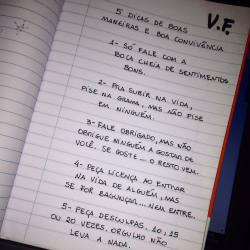 V.F.
5 DICAS DE BOAS
MANEIRAS E BOA CONVIVÊNCIA
1- SÓ FALE COM A
BOCA CHEIA DE SENTIMENTOS
BONS.
2- PRA SUBIR NA VIDA,
PISE NA GRAMA, MAS NÃO PISE
EM NINGUÉM.
3- FALE OBRIGADO, MAS NÃO
OBRIGUE NINGUÉM A GOSTAR DE
VOCÊ. SE GOSTE... O RESTO VEM.
4- PEÇA LICENÇA AO ENTRAR
NA VIDA DE ALGUÉM, MAS
SE FOR BAGUNÇAR... NEM ENTRE.
5- PEÇA DESCULPAS. 10, 15
OU 20 VEZES. ORGULHO NÃO
LEVA A NADA.